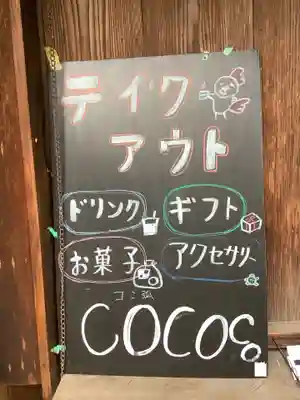 テイク
アウト
ドリンク ギフト
お菓子 アクセサリー
ココ弧
COCO